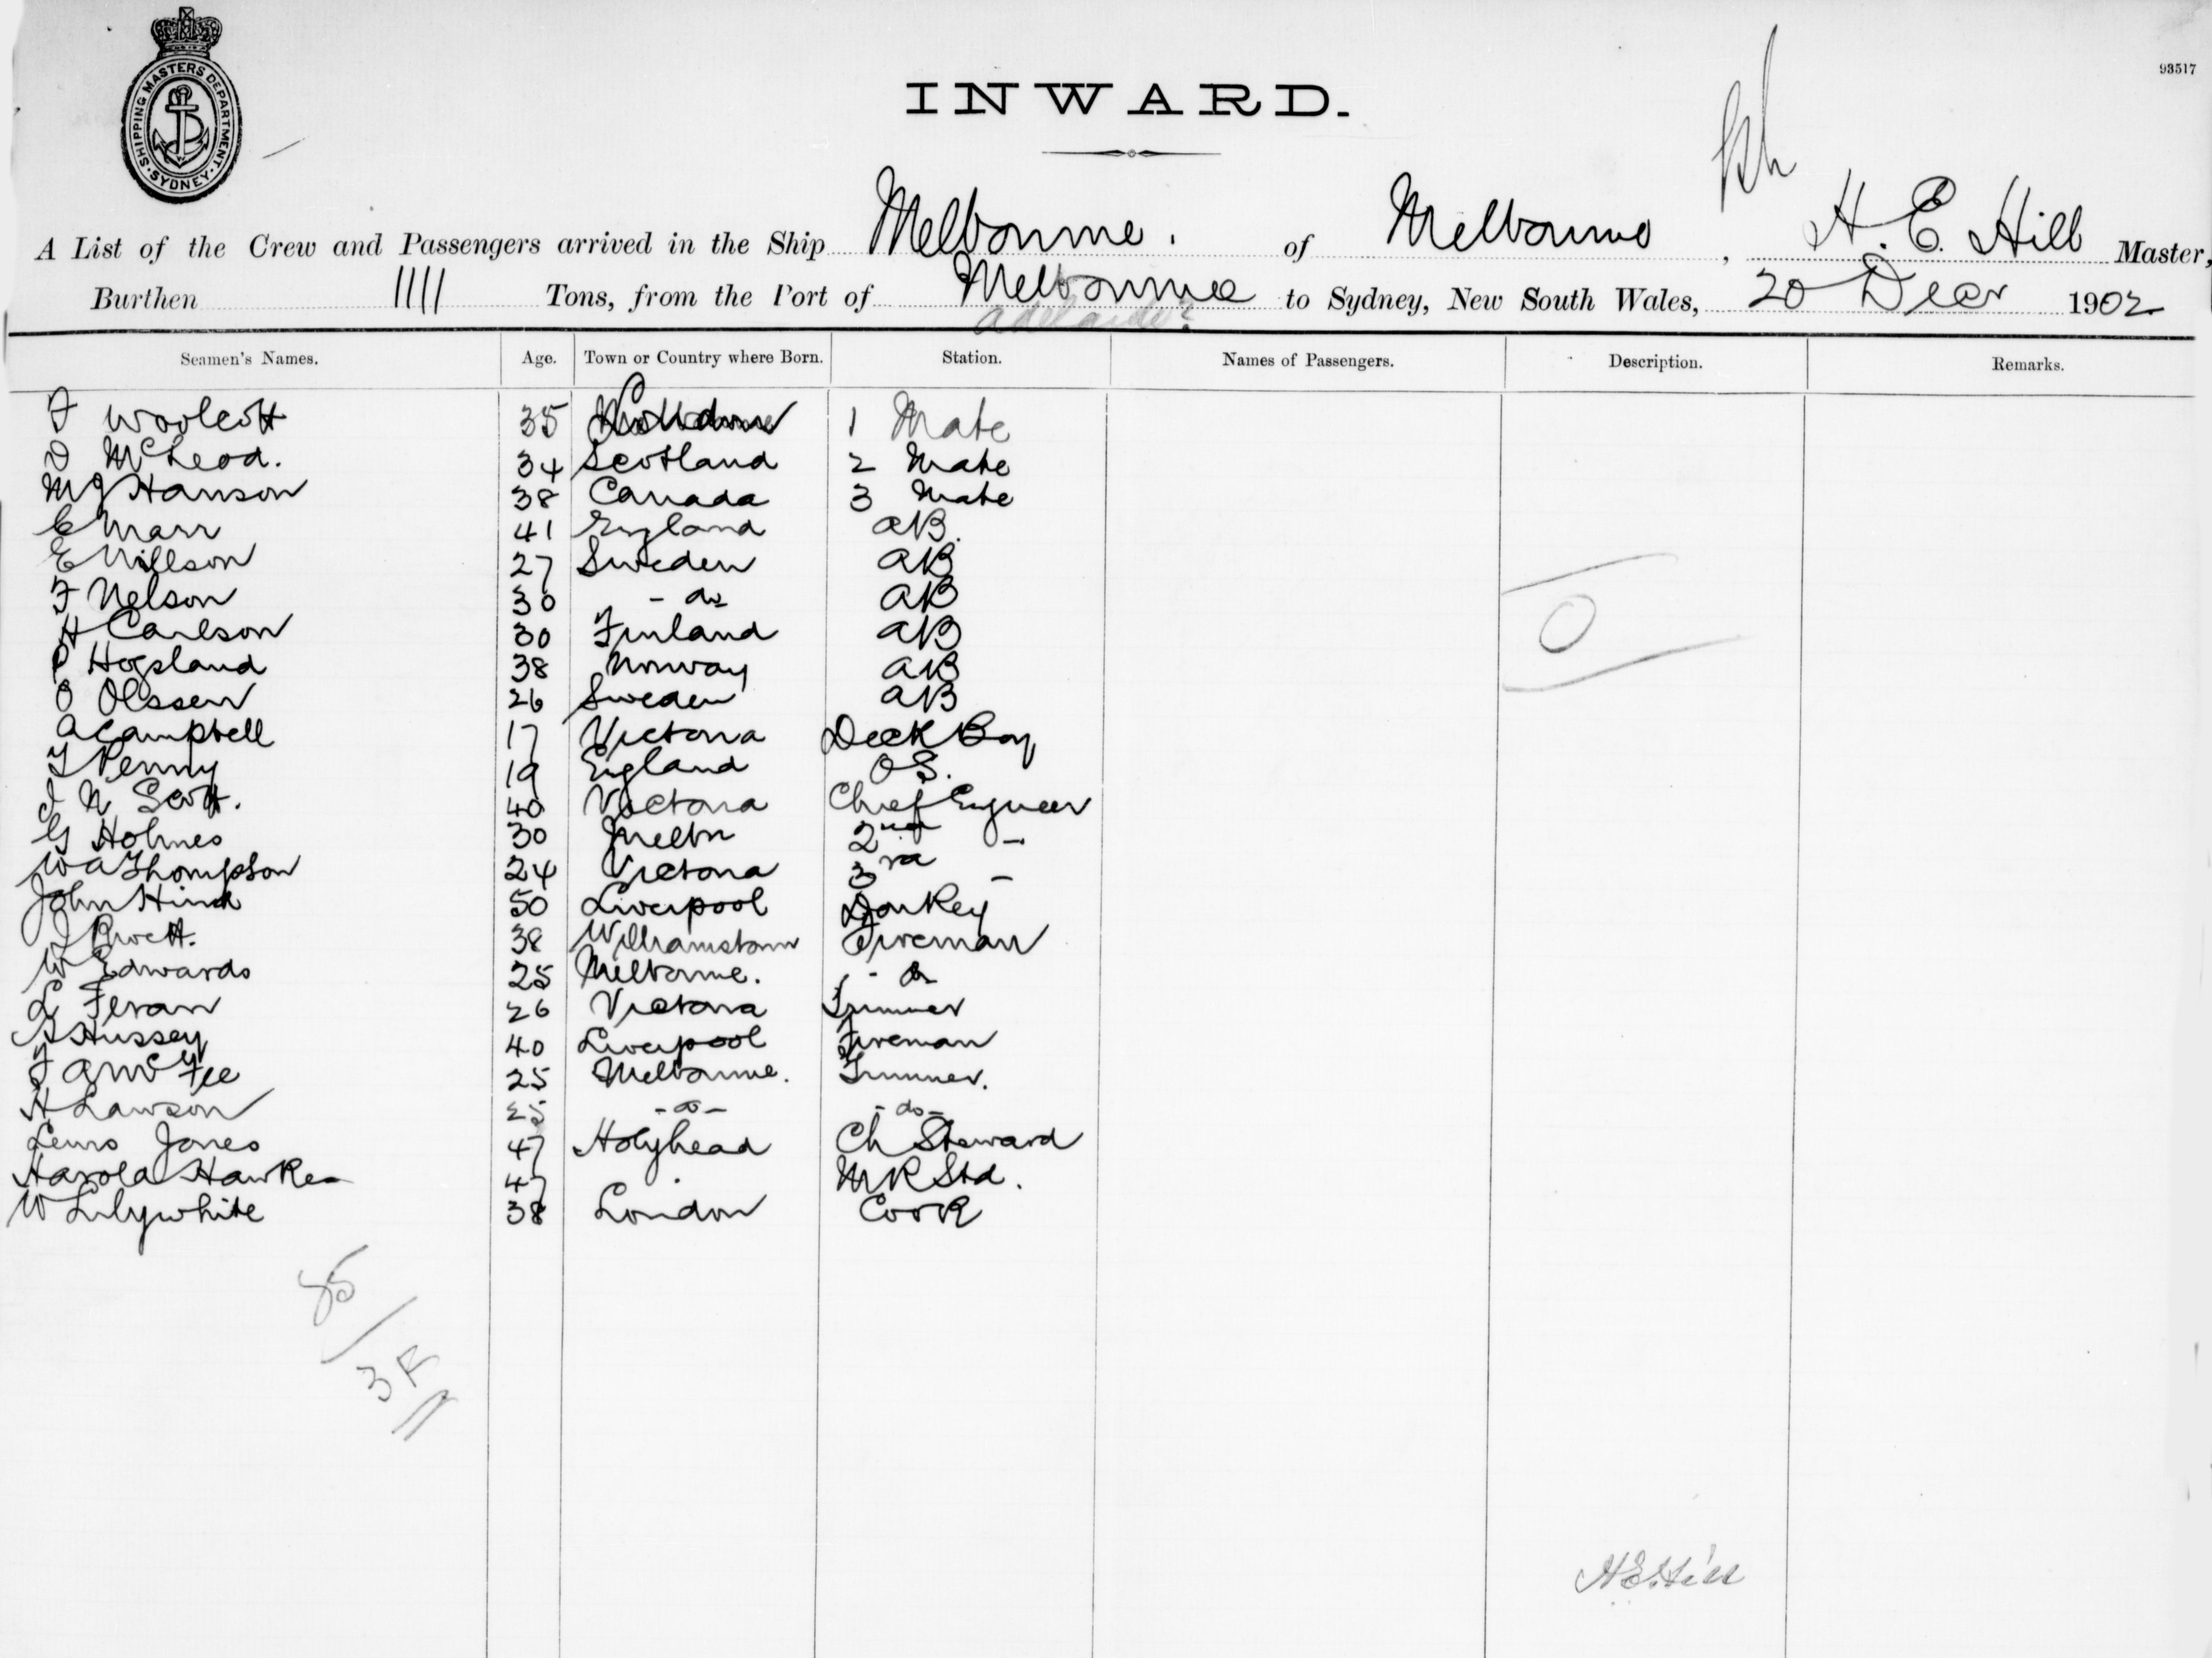 SHIPPING MASTERS DEPARTMENT · SYDNEY ·
93517
INWARD.
A List of the Crew and Passengers arrived in the Ship Melbourne. of Melbourne, H. E. Hill Master,
Burthen 1111 Tons, from the Port of Melbourne to Sydney, New South Wales, 20 Decr 1902
Adelaide?
Seamen's Names. Age. Town or Country where Born. Station. Names of Passengers. Description. Remarks.
F Woolcott 35 London 1 Mate
D McLeod. 34 Scotland 2 Mate
M J Hanson 38 Canada 3 Mate
C Marr 41 England AB.
E Nillson 27 Sweden AB
F Nelson 30 - do AB
H Carlson 30 Finland AB
P Hogsland 38 Norway AB
O Olssen 26 Sweden AB
A Campbell 17 Victoria Deck Boy
T Penny 19 England OS.
J N Scott. 40 Victoria Chief Engineer
G Holmes 30 Melbn 2nd -
W A Thompson 24 Victoria 3rd -
John Hind 50 Liverpool Donkey
J 38 Williamstown Fireman
W Edwards 25 Melbourne. - do
L Feran 26 Victoria Trimmer
J Hussey 40 Liverpool Fireman
J A McFee 25 Melbourne. Trimmer.
H Lawson 25 - do - - do -
Lewis Jones 47 Holyhead Ch Steward
Harold Hawkes 47 MR Std.
W Lilywhite 38 London Cook
O
H E Hill